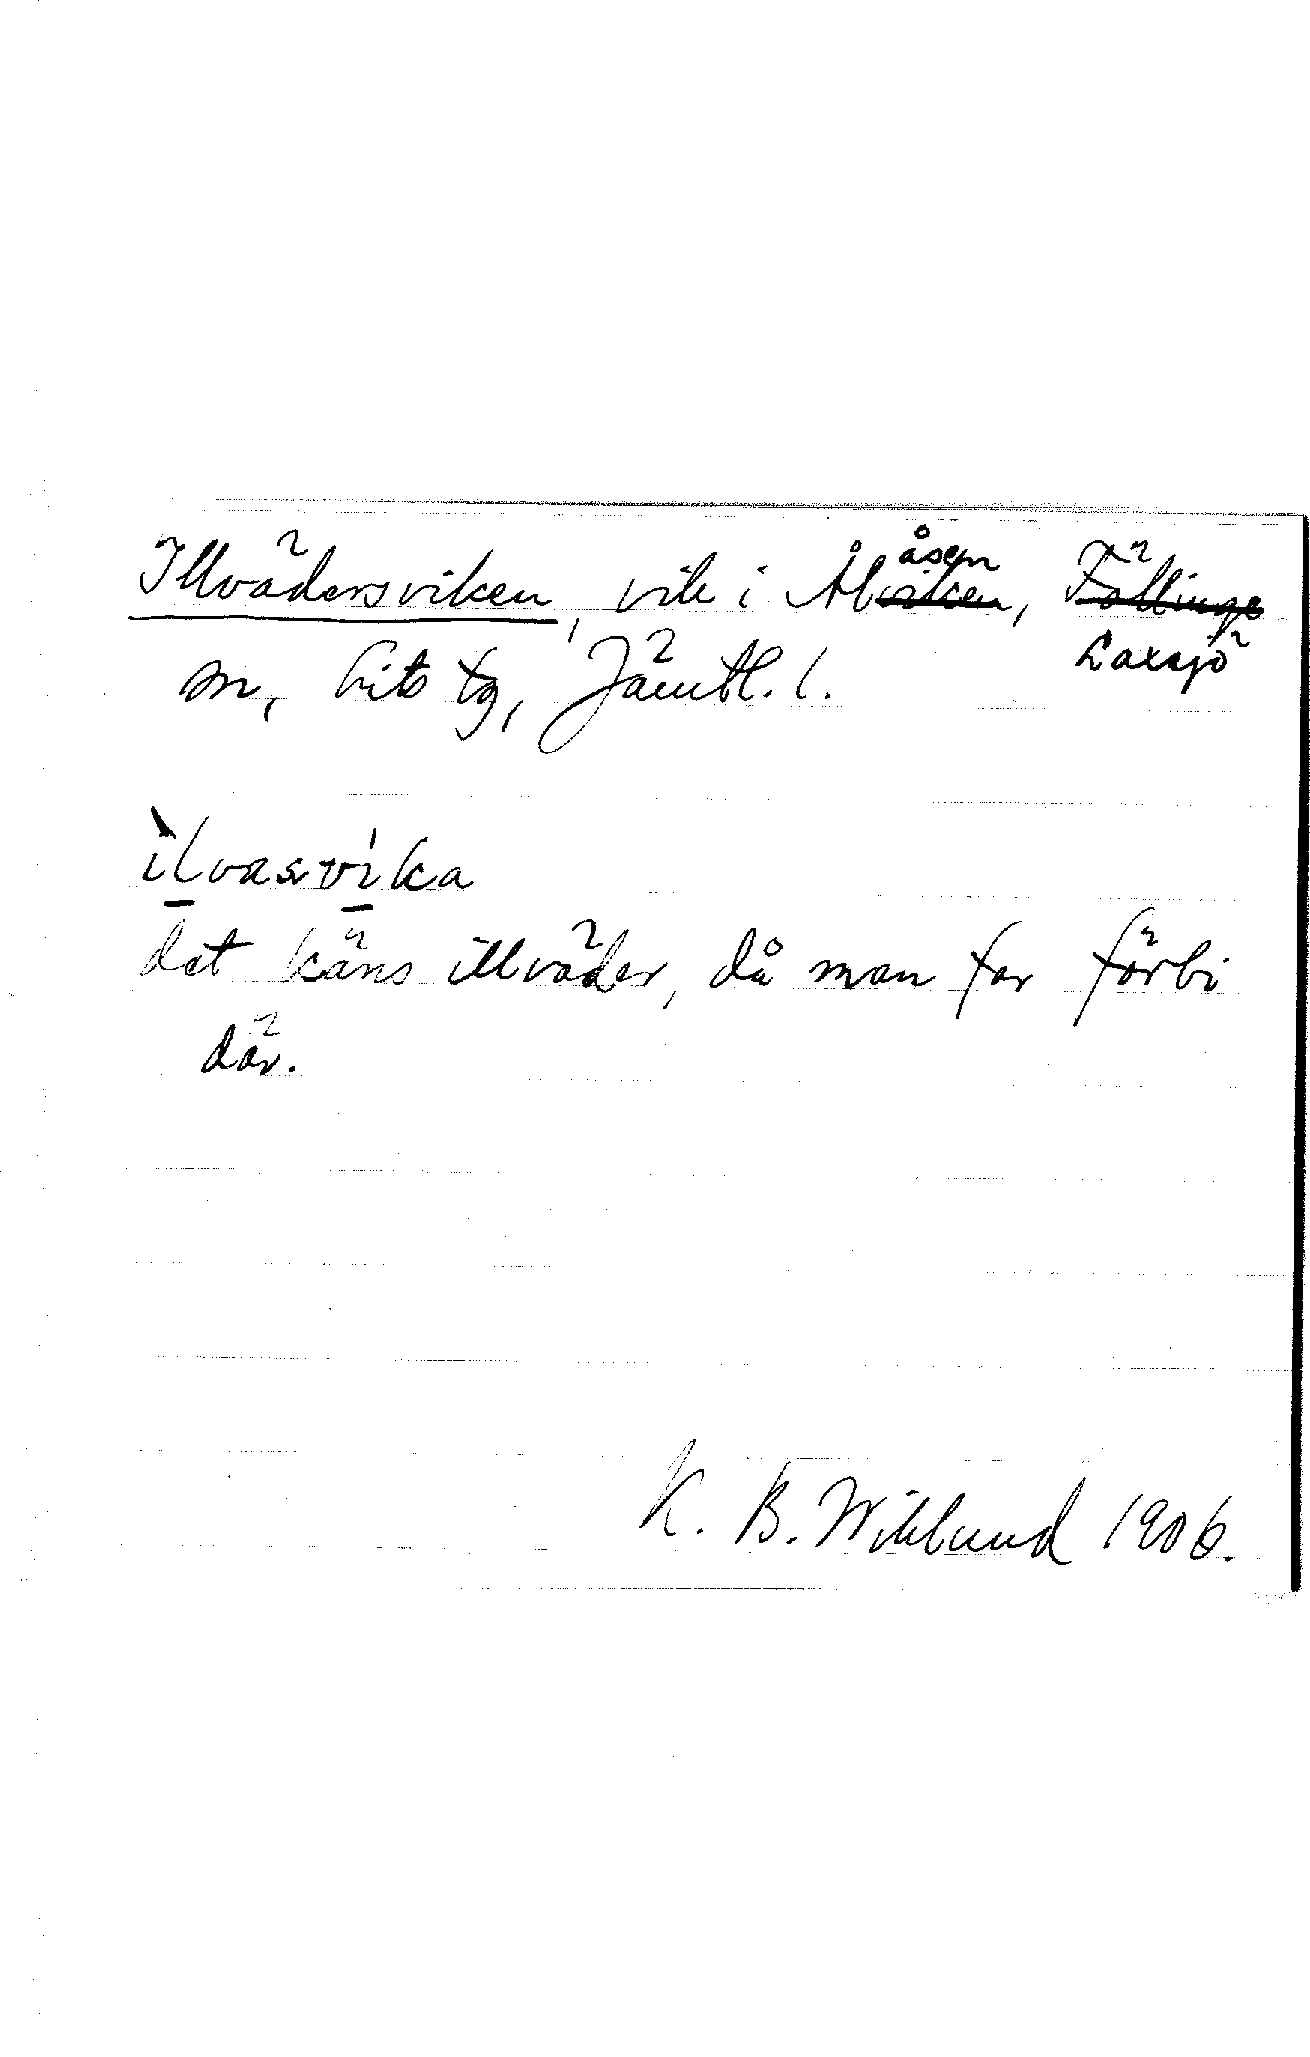 Illvädersviken, vik i Ålviken, Föllinge
åsen
Laxsjö
sn, Lits tg, Jämtl. l.
ilvasvika
det käns illväder, då man far förbi
där.
K. B. Wiklund 1906.